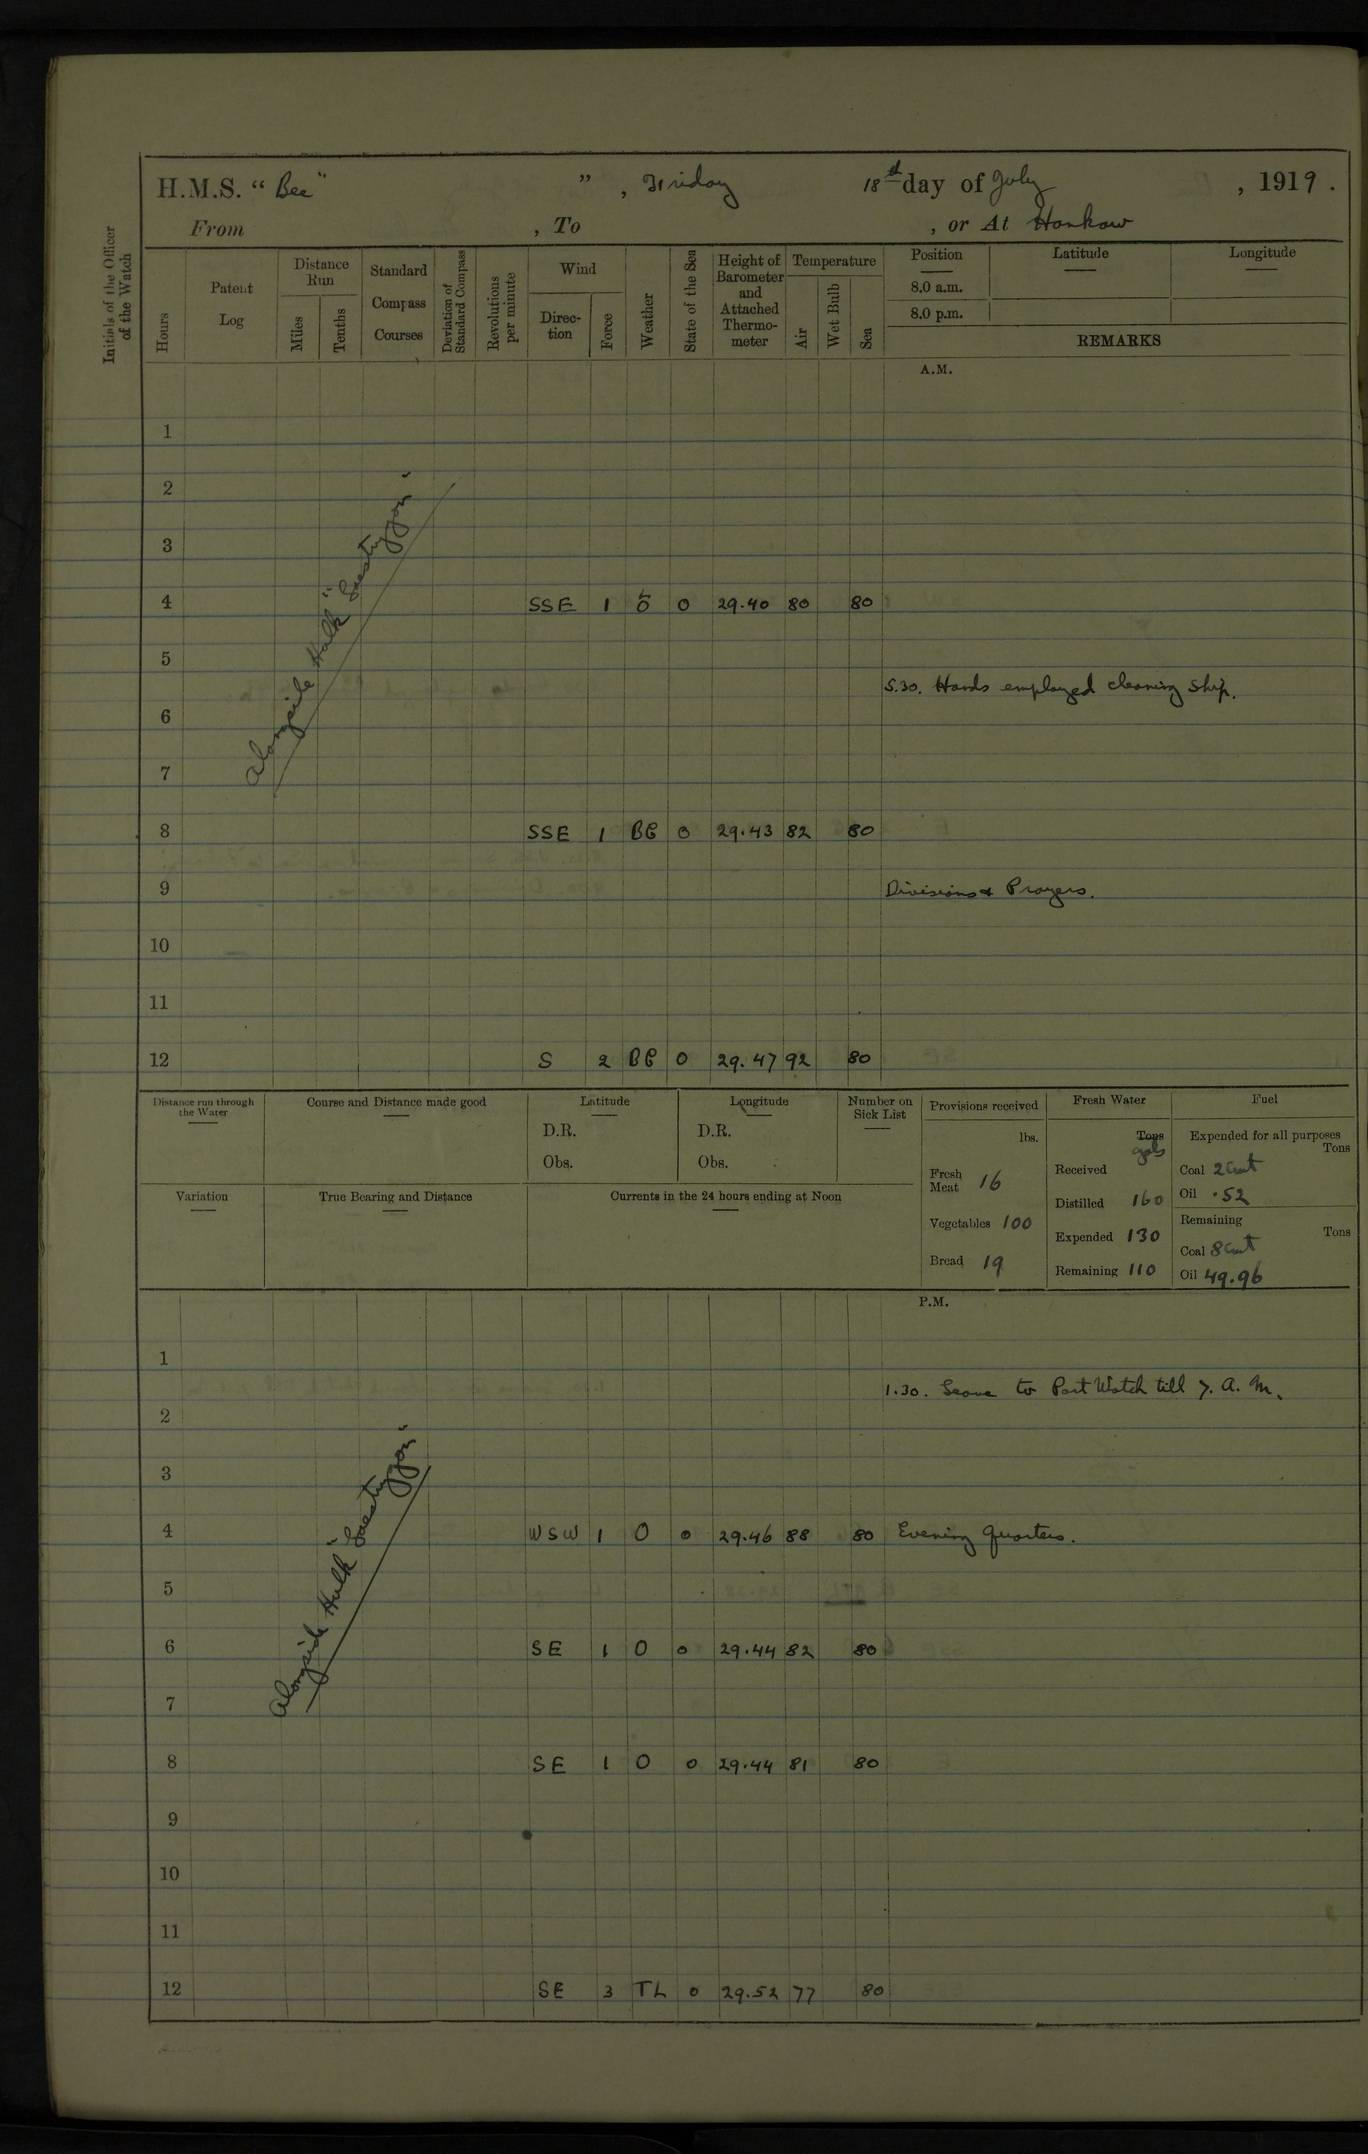 H.M.S. “ Bee” ” , Friday 18th day of July , 1919 .
From , To , or At Hankow
Initials of the Officer of the Watch
Hours
Patent Log
Distance Run
Miles
Tenths
Standard Compass Courses
Deviation of Standard Compass
Revolutions per minute
Wind
Direc-tion
Force
Weather
State of the Sea
Height of Barometer and Attached Thermo-meter
Temperature
Air
Wet Bulb
Sea
Position
8.0 a.m.
8.0 p.m.
Latitude
Longitude
REMARKS
A.M.
1
2
3
Alongside Hulk
4 SSE 1 0 29.40 80 80
5
5.30. Hands employed cleaning ship.
6
7
8 SSE 1 BC 0 29.43 82 80
9 Divisions & Prayers.
10
11
12 S 2 BC 0 29.47 92 80
Distance run through the Water
Course and Distance made good
Latitude
D.R.
Obs.
Longitude
D.R.
Obs.
Number on Sick List
Variation
True Bearing and Distance
Currents in the 24 hours ending at Noon
Provisions received
lbs.
Fresh Meat 16
Vegetables 100
Bread 19
Fresh Water
Tons
gals
Received
Distilled 160
Expended 130
Remaining 110
Fuel
Expended for all purposes
Tons
Coal 2 Cwt
Oil .52
Remaining
Tons
Coal 8 Cwt
Oil 49.96
P.M.
1
1.30. Leave to Part Watch till 7. A. M.
2
3
Alongside Hulk
4 WSW 1 O 0 29.46 88 80 Evening Quarters.
5
6 SE 1 O 0 29.44 82 80
7
8 SE 1 O 0 29.44 81 80
9
10
11
12 SE 3 TL 0 29.52 77 80